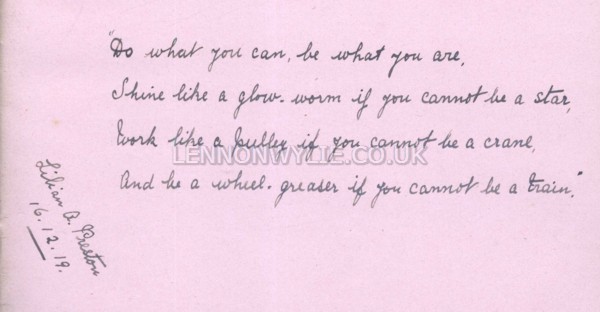 "Do what you can, be what you are,
Shine like a glow-worm if you cannot be a star,
Work like a pulley if you cannot be a crane,
LENNONWYLIE.CO.UK
And be a wheel-greaser if you cannot be a train."
Lilian A. Preston
16.12.19.